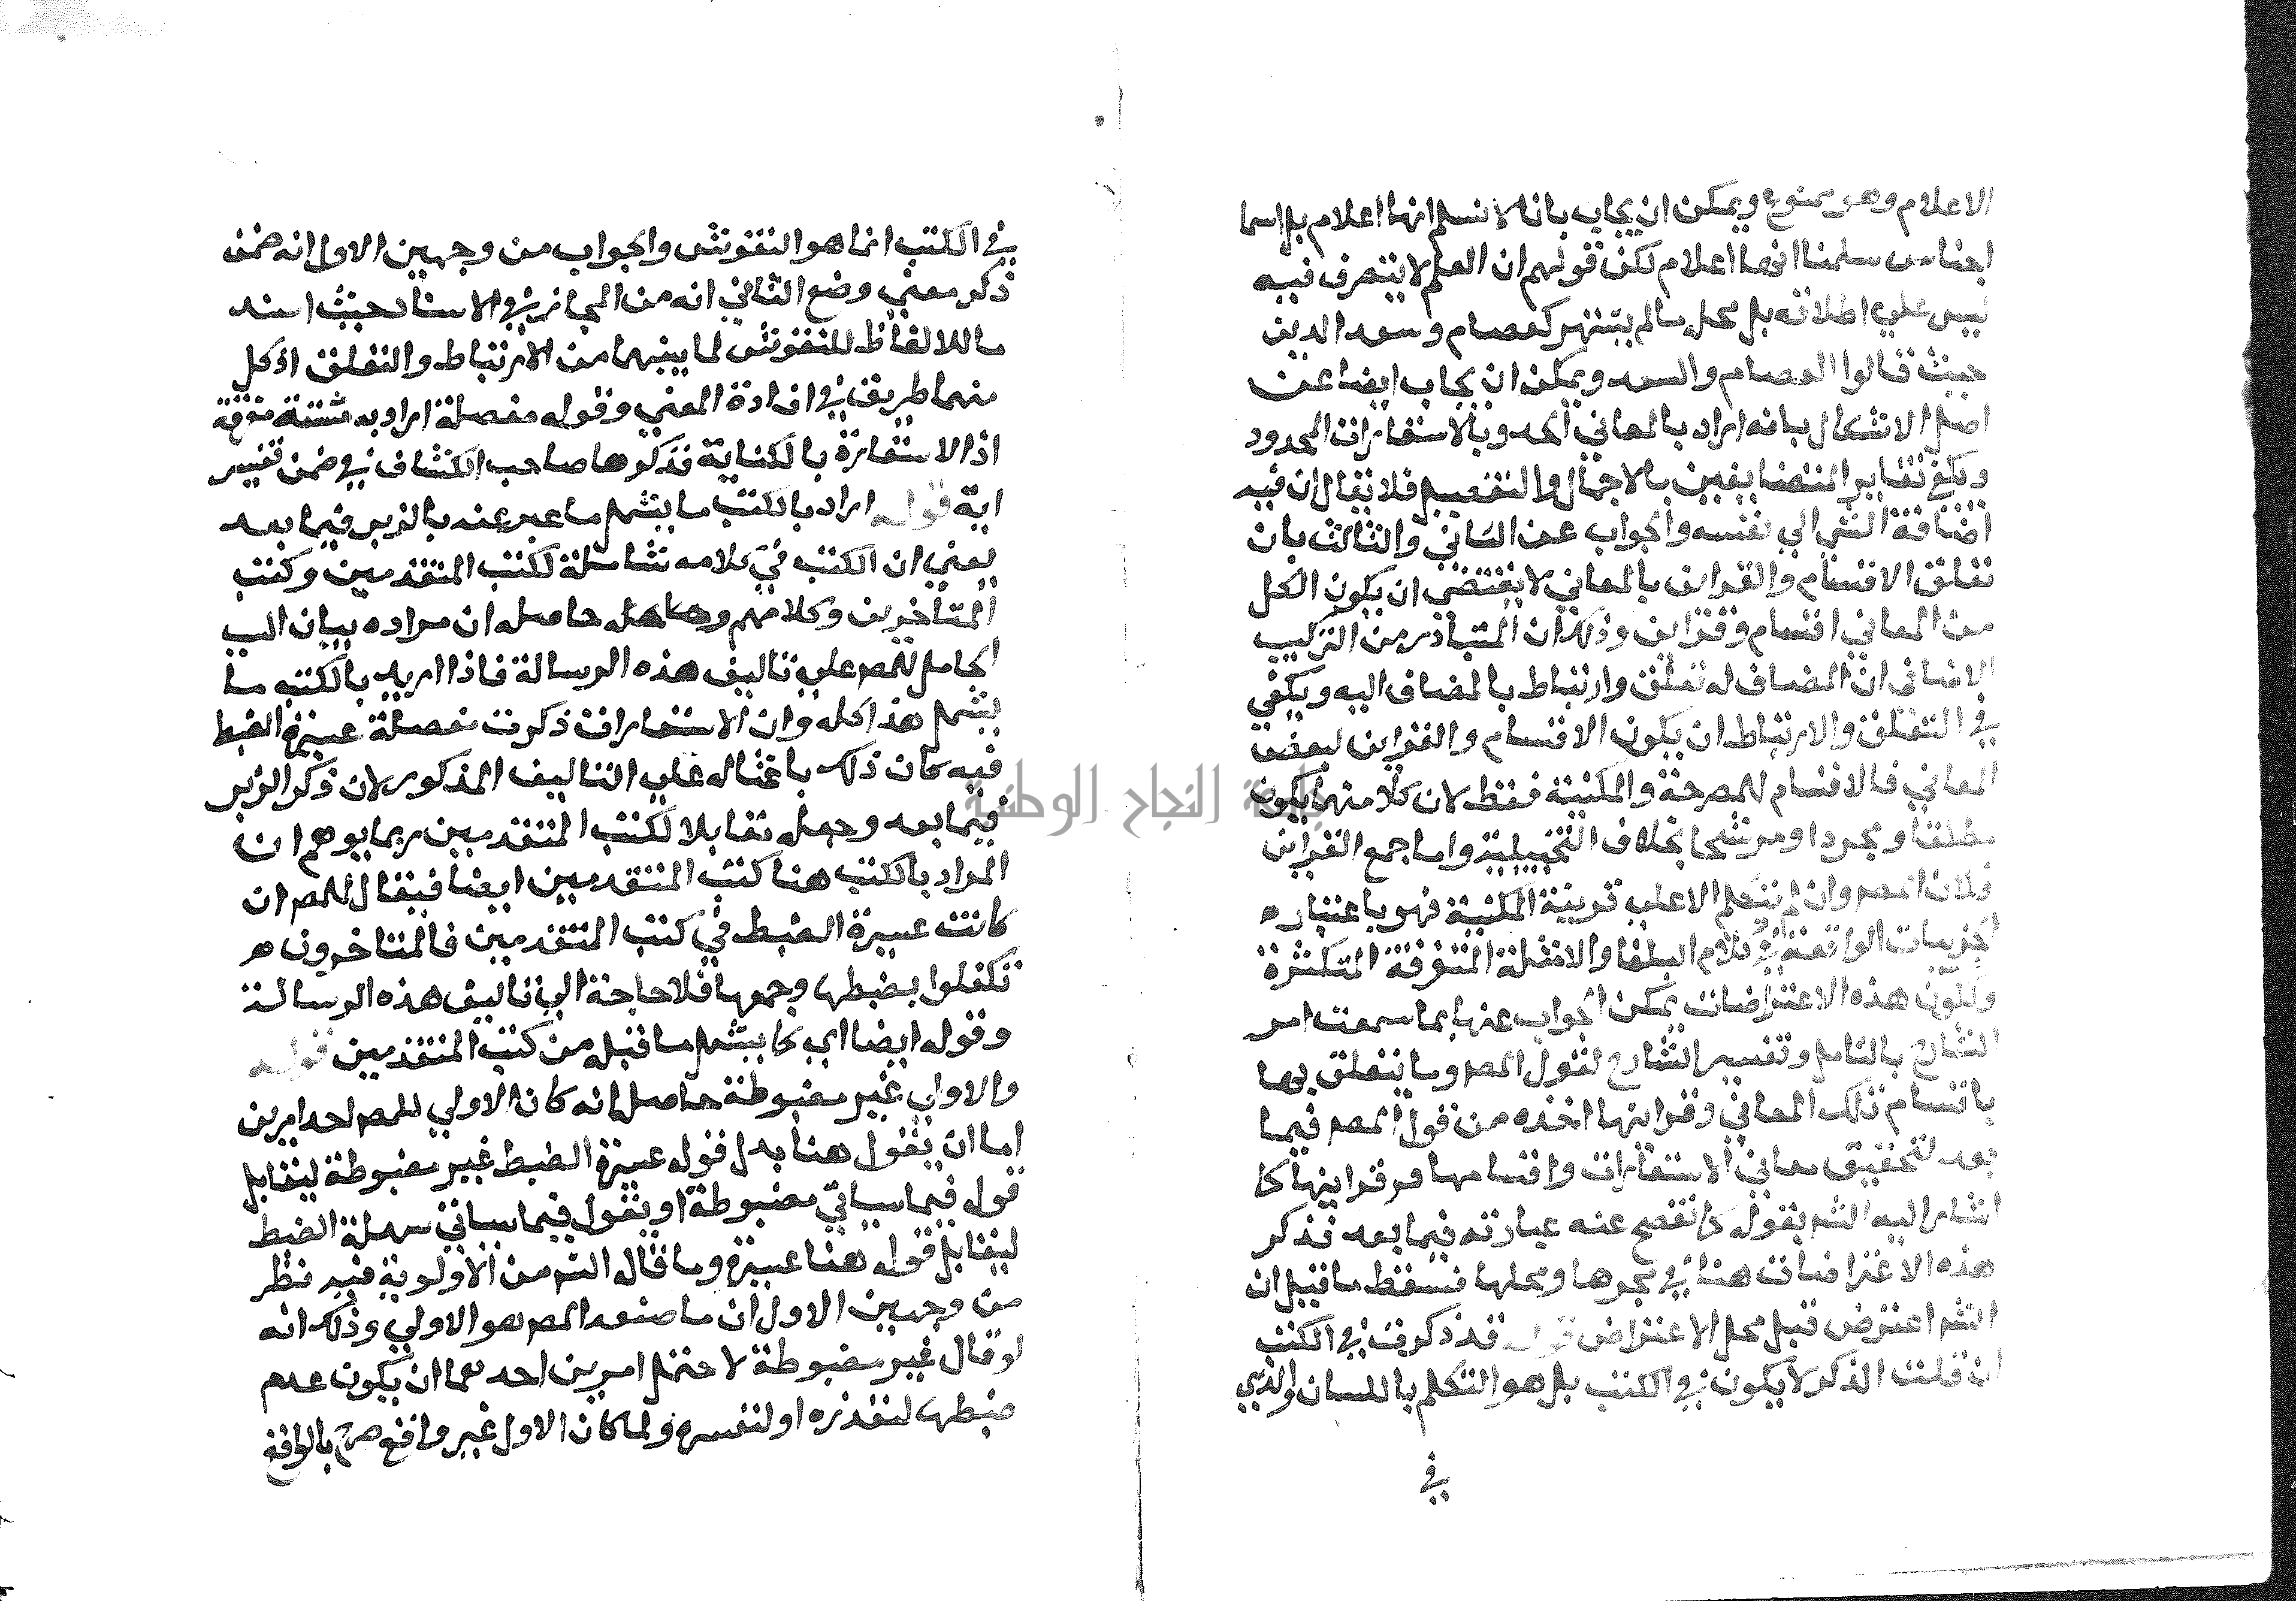 الاعلام وهو ممنوع ويمكن ان يجاب بانه لا نسلم انها اعلام بل اسما
اجناس سلمنا انها اعلام لكن قولهم ان العلم لا يتصرف فيه
ليس علي اطلاقه بل محله ما لم يشتهر كعصام وسعد الدين
حيث قالوا العصام والسعد ويمكن ان يجاب ايضا عن
اصل الاشكال بانه اراد بالمعاني الحد وبالاستعارات المحدود
ويكفي تغاير المتضايفين بالاجمال والتفصيل فلا يقال ان فيه
اضافة الشي الي نفسه والجواب عن الثاني والثالث بان
تعلق الاقسام والقراين بالمعاني لا يقتضي ان يكون لكل
من المعاني اقسام وقراين وذلك ان المتبادر من التركيب
الاضافي ان المضاف له تعلق وارتباط بالمضاف اليه ويكفي
في التعلق والارتباط ان يكون الاقسام والقراين لبعض
المعاني فالاقسام للمصرحة والمكنية فقط لان كلا منهما يكون
مطلقا ومجردا ومرشحا بخلاف التخييلية واما جمع القراين
فلان المص وان لم الاعلب قرينة المكنية فهو باعتباره
الجزييات الواقعة في كلام البلغا والامثلة المتفرقة المتكثرة
ولكون هذه الاعتراضات يمكن الجواب عنها بما سمعت امر
الشارح بالتامل وتفسير الشارح لقول المص وما يتعلق بها
باقسام تلك المعاني وقراينها اخذه من قول المص فيما
بعد لتحقيق معاني الاستعارات واقسامها وقراينها كما
اشار اليه الشم بقوله كما تفصح عنه عبارته فيما بعد فذكر
هذه الاعتراضات هنا في محرها ومحلها فسقط ما قيل ان
الشم اعترض قبل محل الاعتراض قوله قد ذكرت في الكتب
ان قلت الذكر لا يكون في الكتب بل هو التكلم باللسان والذي
في
في الكتب انما هو النقوش والجواب من وجهين الاول انه ضمن
ذكر معني وضع الثاني انه من المجاز في الاسناد حيث اسند
ما للالفاظ للنقوش لما بينهما من الارتباط والتعلق اذ كل
منهما طريق في افادة المعني وقوله مفصلة اراد به مشتتة متفرقة
اذ الاستعارة بالكناية قد ذكرها صاحب الكشاف في ضمن تفسير
اية قوله اراد بالكتب ما يشمل ما عبر عنه بالزبر فيما بعد
يعني ان الكتب في كلامه شاملة لكتب المتقدمين وكتب
المتاخرين وكلامهم حاصله ان مراده بيان السبب
الحامل للمص علي تاليف هذه الرسالة فاذا اريد بالكتب ما
يشمل هذا كله وان الاستعارات ذكرت مفصلة عسيرة الضبط
فيه كان ذلك باعثا له علي التاليف المذكور لان ذكر الزبر
فيما بعد وجعله مقابلا لكتب المتقدمين ربما يوهم ان
المراد بالكتب هنا كتب المتقدمين ايضا فيقال للمص ان
كانت عسيرة الضبط في كتب المتقدمين فالمتاخرون هم
تكفلوا بضبطها وجمعها فلا حاجة الي تاليف هذه الرسالة
وقوله ايضا اي كما يشمل ما قبله من كتب المتقدمين قوله
والاولي غير مضبوطة حاصله انه كان الاولي للمص احد امرين
اما ان يقول هنا بدل قوله عسيرة الضبط غير مضبوطة ليقابل
قوله فيما سياتي مضبوطة او يقول فيما سياتي سهلة الضبط
ليقابل قوله هنا عسيرة وما قال الشم من الاولوية فيه نظر
من وجهين الاول ان ما صنعه المص هو الاولي وذلك انه
لو قال غير مضبوطة لاحتمل امرين احدهما ان يكون عدم
ضبطها لتعذره او لتعسره ولما كان الاول غير واقع صرح بالواقع
جامعة النجاح الوطنية